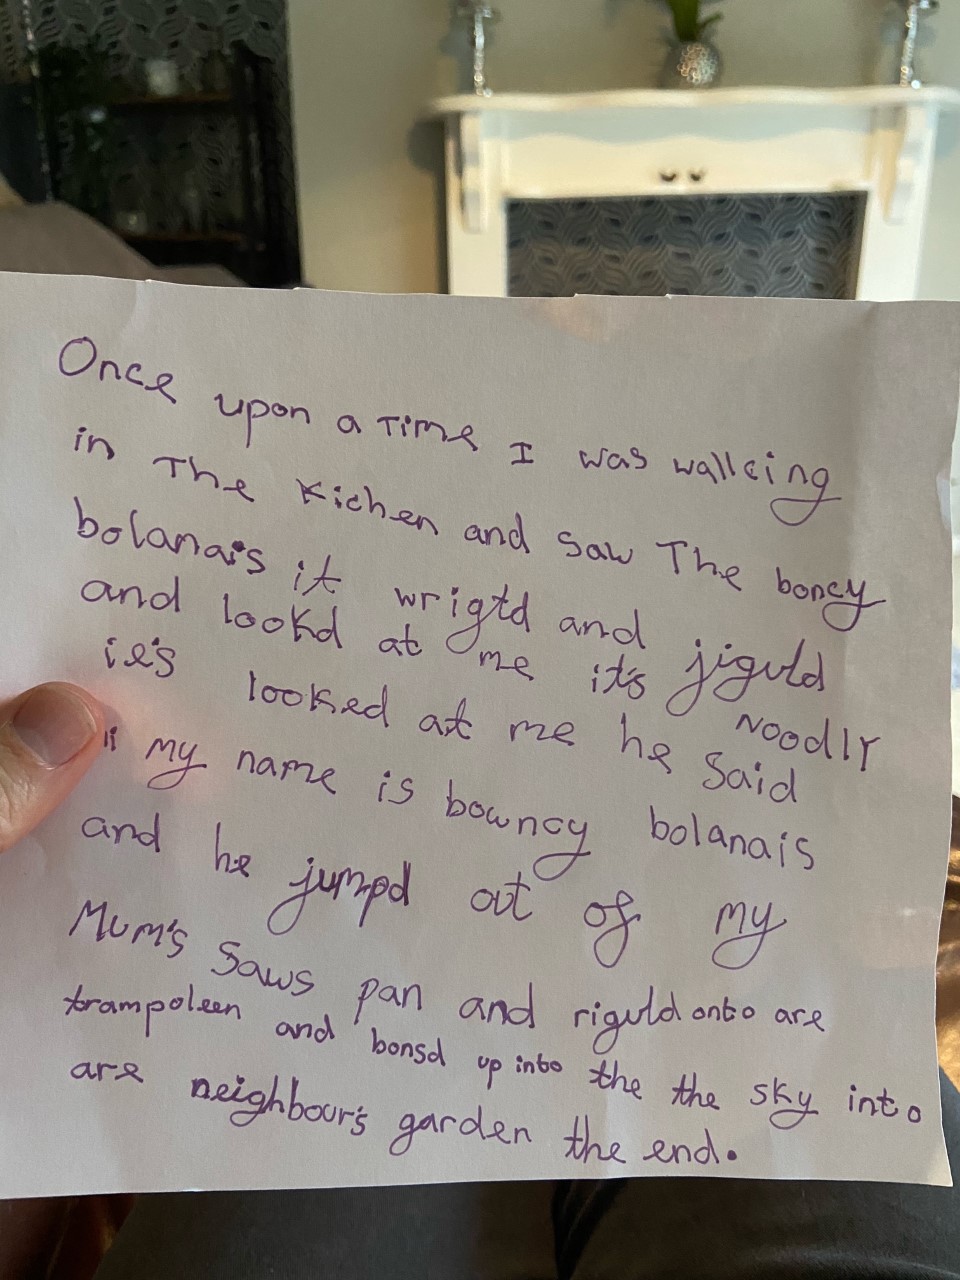 Once upon a Time I was wallcing
in The Kichen and saw The boncy
bolanais it wrigtd and jiguld
and lookd at me it's Noodly
ie's looked at me he said
" my name is bowncy bolanais
and he jumpd out of my
Mum's Saws pan and riguld onto are
trampoleen and bonsd up into the the sky into
are neighbour's garden the end.